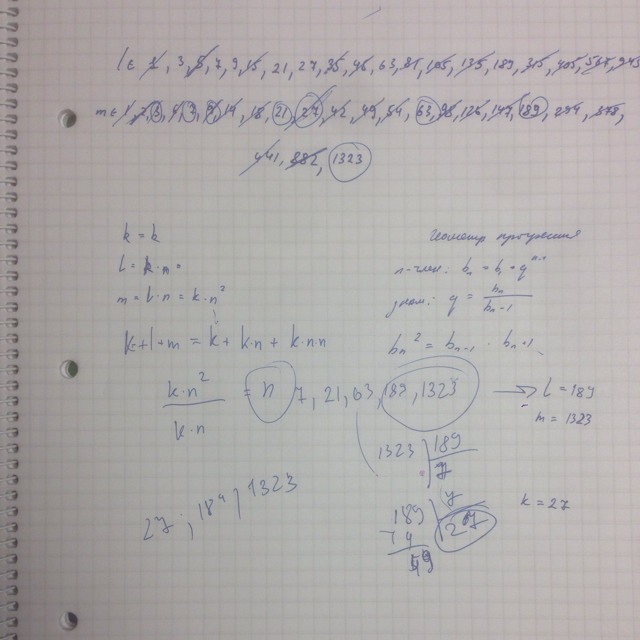 l ∈ 1, 3, 5, 7, 9, 15, 21, 27, 35, 45, 63, 81, 105, 135, 189, 315, 405, 567, 945
m ∈ 1, 2, 3, 7, 9, 14, 18, 21, 27, 42, 49, 54, 63, 98, 126, 147, 189, 294, 378,
441, 882, 1323
k = k
l = k·n =
m = l·n = k·n²
k+l+m = k + k·n + k·n·n
k·n² / k·n = n 7, 21, 63, 189, 1323 → l = 189
m = 1323
прогрессия
n-член: bₙ = b₁ · qⁿ⁻¹
q = bₙ / bₙ₋₁
bₙ² = bₙ₋₁ · bₙ₊₁
1323 | 189
7
189 | 7
14 27
49
k = 27
27, 189, 1323